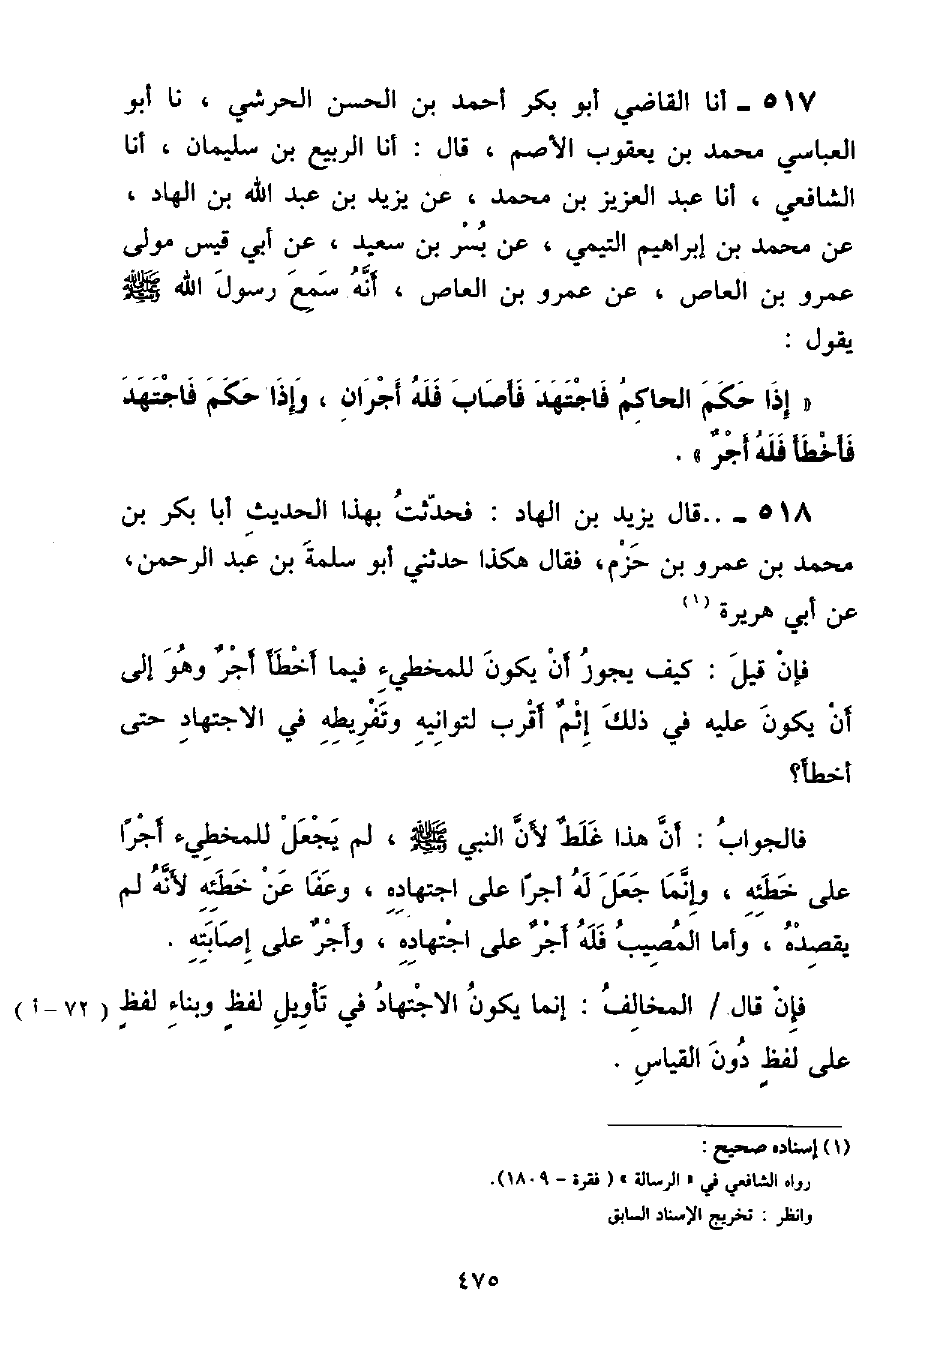 ٥١٧ - أنا القاضي أبو بكر أحمد بن الحسن الحرشي ، نا أبو
العباسي محمد بن يعقوب الأصم ، قال : أنا الربيع بن سليمان ، أنا
الشافعي ، أنا عبد العزيز بن محمد ، عن يزيد بن عبد الله بن الهاد ،
عن محمد بن إبراهيم التيمي ، عن بُسْر بن سعيد ، عن أبي قيس مولى
عمرو بن العاص ، عن عمرو بن العاص ، أَنَّهُ سَمِعَ رسولَ الله ﷺ
يقول :
« إِذَا حَكَمَ الحاكِمُ فَاجْتَهَدَ فَأَصَابَ فَلَهُ أَجْرَانِ ، وَإِذَا حَكَمَ فَاجْتَهَدَ
فَأَخْطَأَ فَلَهُ أَجْرٌ » .
٥١٨ - ..قال يزيد بن الهاد : فحدّثتُ بهذا الحديثِ أبا بكر بن
محمد بن عمرو بن حَزْم، فقال هكذا حدثني أبو سلمةَ بن عبد الرحمن،
عن أبي هريرة (١)
فإنْ قيلَ : كيف يجوزُ أَنْ يكونَ للمخطيءِ فيما أَخْطَأَ أَجْرٌ وهُوَ إلى
أَنْ يكونَ عليه في ذلكَ إِثْمٌ أَقْرب لتوانِيهِ وتَفْرِيطِهِ في الاجتهادِ حتى
أخطأ؟
فالجوابُ : أَنَّ هذا غَلَطٌ لأَنَّ النبي ﷺ ، لم يَجْعَلْ للمخطِيءِ أَجْرًا
على خَطَئِهِ ، وإِنَّمَا جَعَلَ لَهُ أجرًا على اجتهادِهِ ، وعَفَا عَنْ خَطَئِهِ لأَنَّهُ لم
يقصِدْهُ ، وأما المُصِيبُ فَلَهُ أَجْرٌ على اجْتهادِهِ ، وأَجْرٌ على إِصَابَتِهِ .
فإِنْ قال / المخالِفُ : إنما يكونُ الاجْتهادُ في تَأْوِيلِ لفظٍ وبناءِ لفظٍ (٧٢ - أ)
على لفظٍ دُونَ القياسِ .
(١) إسناده صحيح :
رواه الشافعي في « الرسالة » (فقرة - ١٨٠٩).
وانظر : تخريج الإسناد السابق
٤٧٥